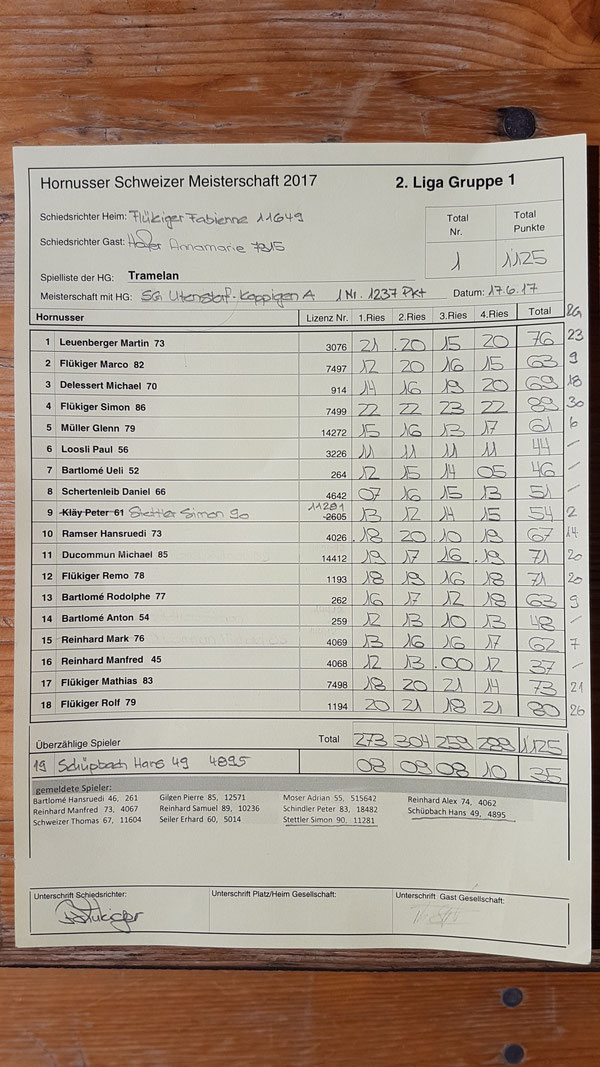 Hornusser Schweizer Meisterschaft 2017 2. Liga Gruppe 1
Schiedsrichter Heim: Flükiger Fabienne 11649
Schiedsrichter Gast: Hofer Annamarie 7315
Total Nr. Total Punkte
1 1125
Spielliste der HG: Tramelan
Meisterschaft mit HG: SG Utzenstorf-Koppigen A 1 Nr. 1237 Pkt Datum: 17.6.17
Hornusser Lizenz Nr. 1.Ries 2.Ries 3.Ries 4.Ries Total RG
1 Leuenberger Martin 73 3076 21 20 15 20 76 23
2 Flükiger Marco 82 7497 12 20 16 15 63 9
3 Delessert Michael 70 914 14 16 19 20 69 18
4 Flükiger Simon 86 7499 22 22 23 22 89 30
5 Müller Glenn 79 14272 15 16 13 17 61 6
6 Loosli Paul 56 3226 11 11 11 11 44 –
7 Bartlomé Ueli 52 264 12 15 14 05 46 –
8 Schertenleib Daniel 66 4642 07 16 15 13 51 –
9 Kläy Peter 61 Stettler Simon 90 11281 2605 13 12 14 15 54 2
10 Ramser Hansruedi 73 4026 18 20 10 19 67 14
11 Ducommun Michael 85 14412 19 17 16 19 71 20
12 Flükiger Remo 78 1193 18 19 16 18 71 20
13 Bartlomé Rodolphe 77 262 16 17 12 18 63 9
14 Bartlomé Anton 54 259 12 13 10 13 48 –
15 Reinhard Mark 76 4069 13 16 16 17 62 7
16 Reinhard Manfred 45 4068 12 13 00 12 37 –
17 Flükiger Mathias 83 7498 18 20 21 14 73 21
18 Flükiger Rolf 79 1194 20 21 18 21 80 26
Überzählige Spieler Total 273 304 259 289 1125
19 Schüpbach Hans 49 4895 08 09 08 10 35
gemeldete Spieler:
Bartlomé Hansruedi 46, 261 Gilgen Pierre 85, 12571 Moser Adrian 55, 515642 Reinhard Alex 74, 4062
Reinhard Manfred 73, 4067 Reinhard Samuel 89, 10236 Schindler Peter 83, 18482 Schüpbach Hans 49, 4895
Schweizer Thomas 67, 11604 Seiler Erhard 60, 5014 Stettler Simon 90, 11281
Unterschrift Schiedsrichter: Unterschrift Platz/Heim Gesellschaft: Unterschrift Gast Gesellschaft:
Flükiger